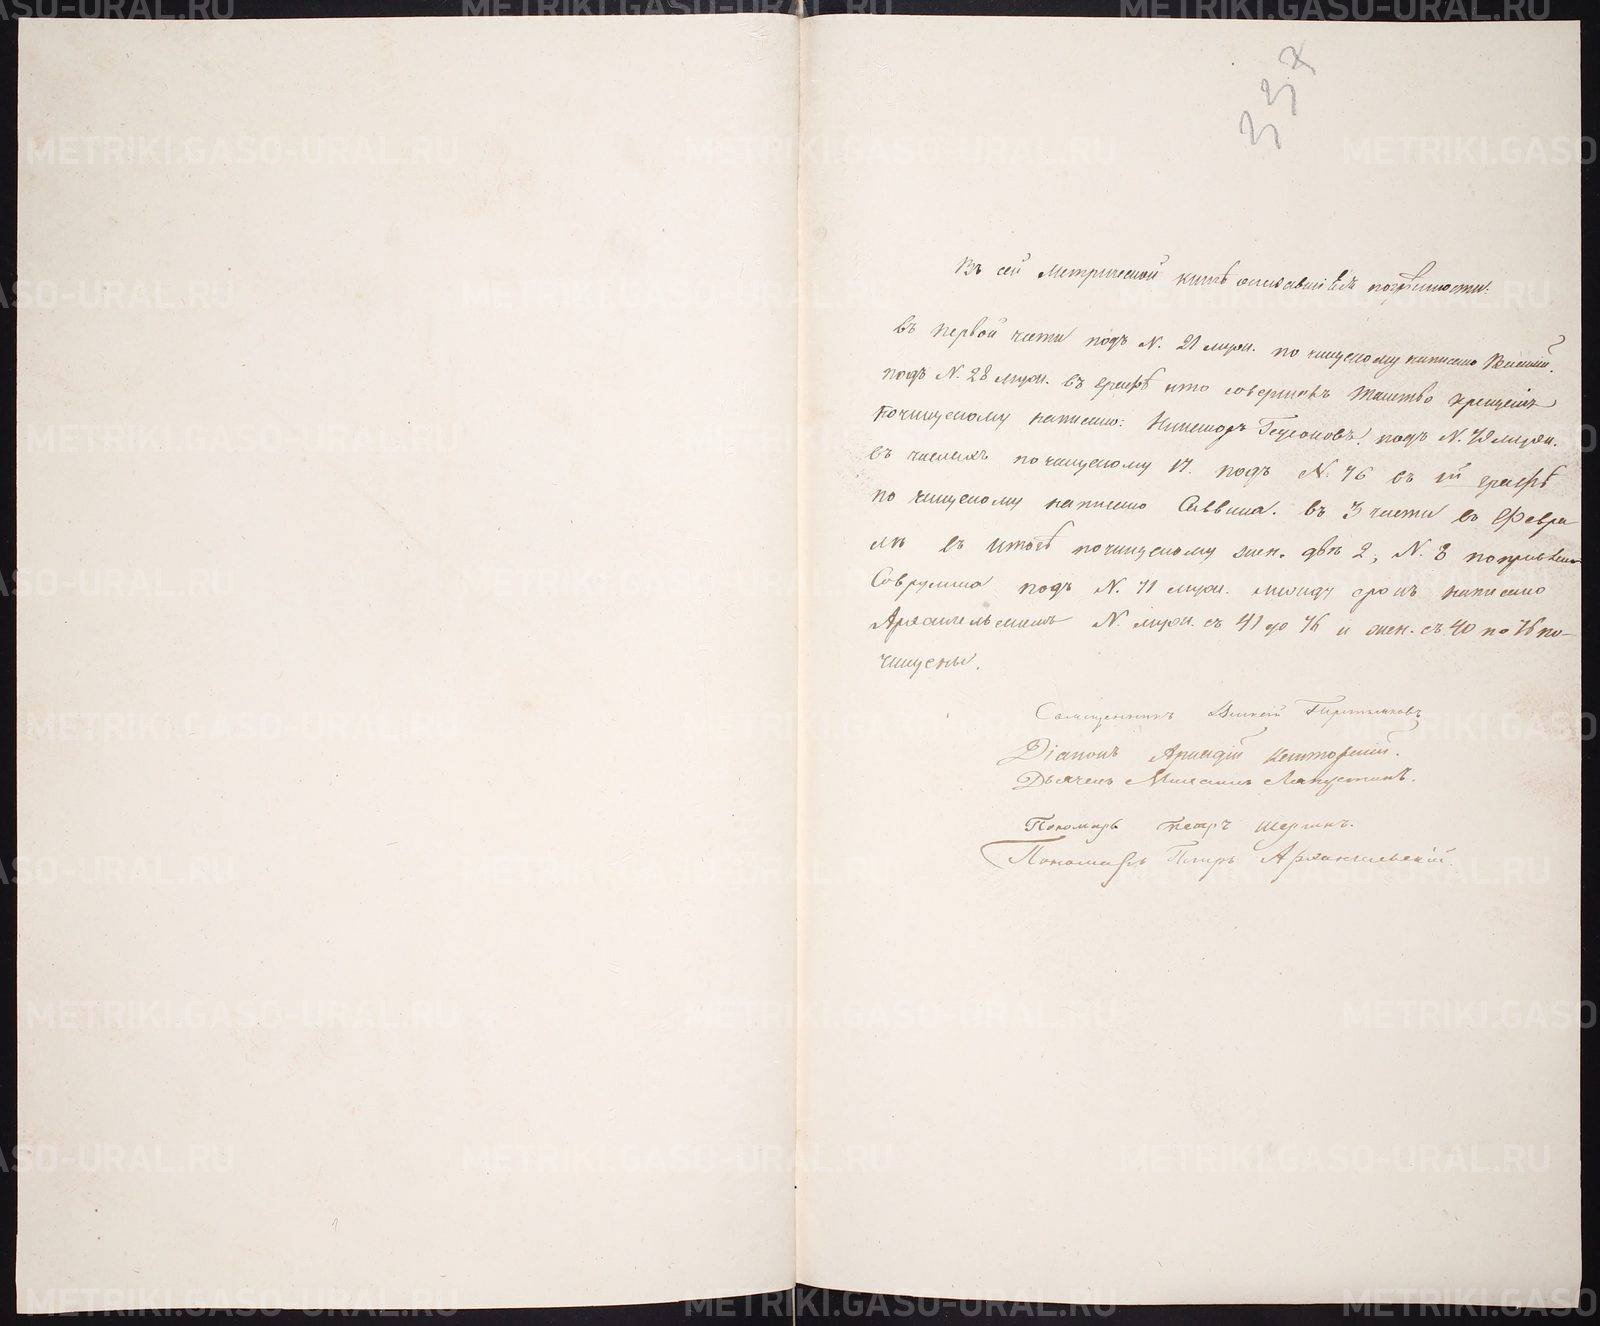 337
Въ сей Метрической книгѣ оказавшіяся погрѣшности:
въ первой части подъ N. 21 муж. по чищеному написано
подъ N. 28 муж. въ графѣ кто совершалъ таинство крещенія
почищеному написано: подъ N. муж.
въ числахъ по чищеному 17. подъ N. 76 въ графѣ
по чищеному написано Саввина. въ 3 части въ Февра
лѣ въ итогѣ почищеному жен. двѣ 2, N. 8
подъ N. 71 муж. между строкъ написано
Архангельскимъ N. муж. съ 41 до 76 и жен. съ 40 по 76 по-
чищены.
Священникъ
Діаконъ Аркадій
Дьячекъ Михаилъ Лапустинъ.
Пономарь Петръ Шергинъ.
Пономарь Петръ Архангельскій.